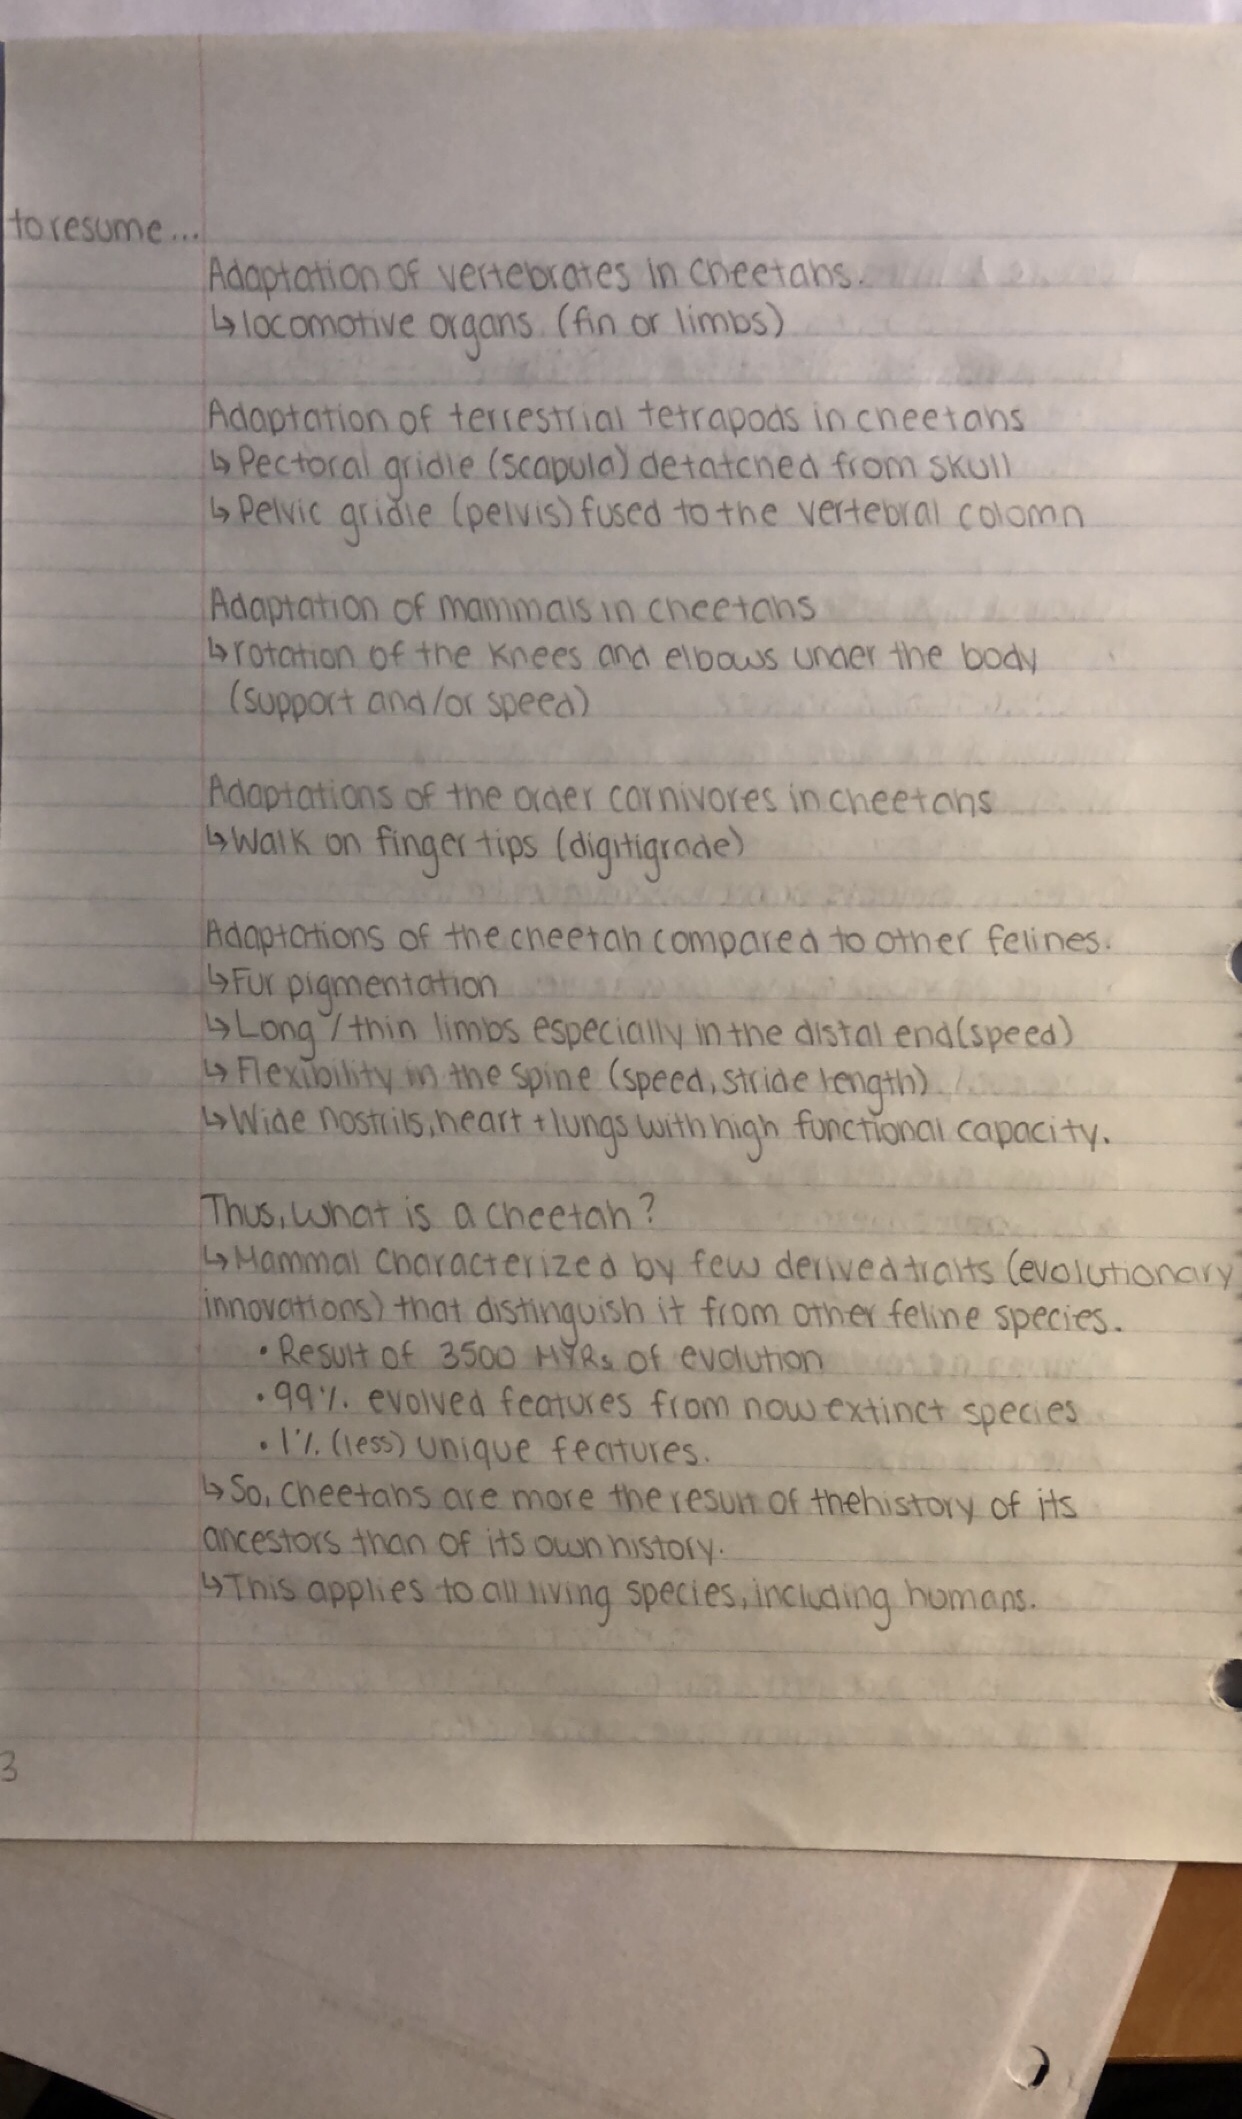 to resume...
Adaptation of vertebrates in cheetahs.
↳ locomotive organs (fin or limbs)
Adaptation of terrestrial tetrapods in cheetahs
↳ Pectoral gridle (scapula) detatched from skull
↳ Pelvic gridle (pelvis) fused to the vertebral colomn
Adaptation of mammals in cheetahs
↳ rotation of the knees and elbows under the body
(support and/or speed)
Adaptations of the order carnivores in cheetahs
↳ Walk on finger tips (digitigrade)
Adaptations of the cheetah compared to other felines.
↳ Fur pigmentation
↳ Long / thin limbs especially in the distal end (speed)
↳ Flexibility in the spine (speed, stride length)
↳ Wide nostrils, heart + lungs with high functional capacity.
Thus, what is a cheetah?
↳ Mammal characterized by few derived traits (evolutionary
innovations) that distinguish it from other feline species.
• Result of 3500 MYRs of evolution
• 99% evolved features from now extinct species
• 1% (less) unique features.
↳ So, cheetahs are more the result of the history of its
ancestors than of its own history.
↳ This applies to all living species, including humans.
3